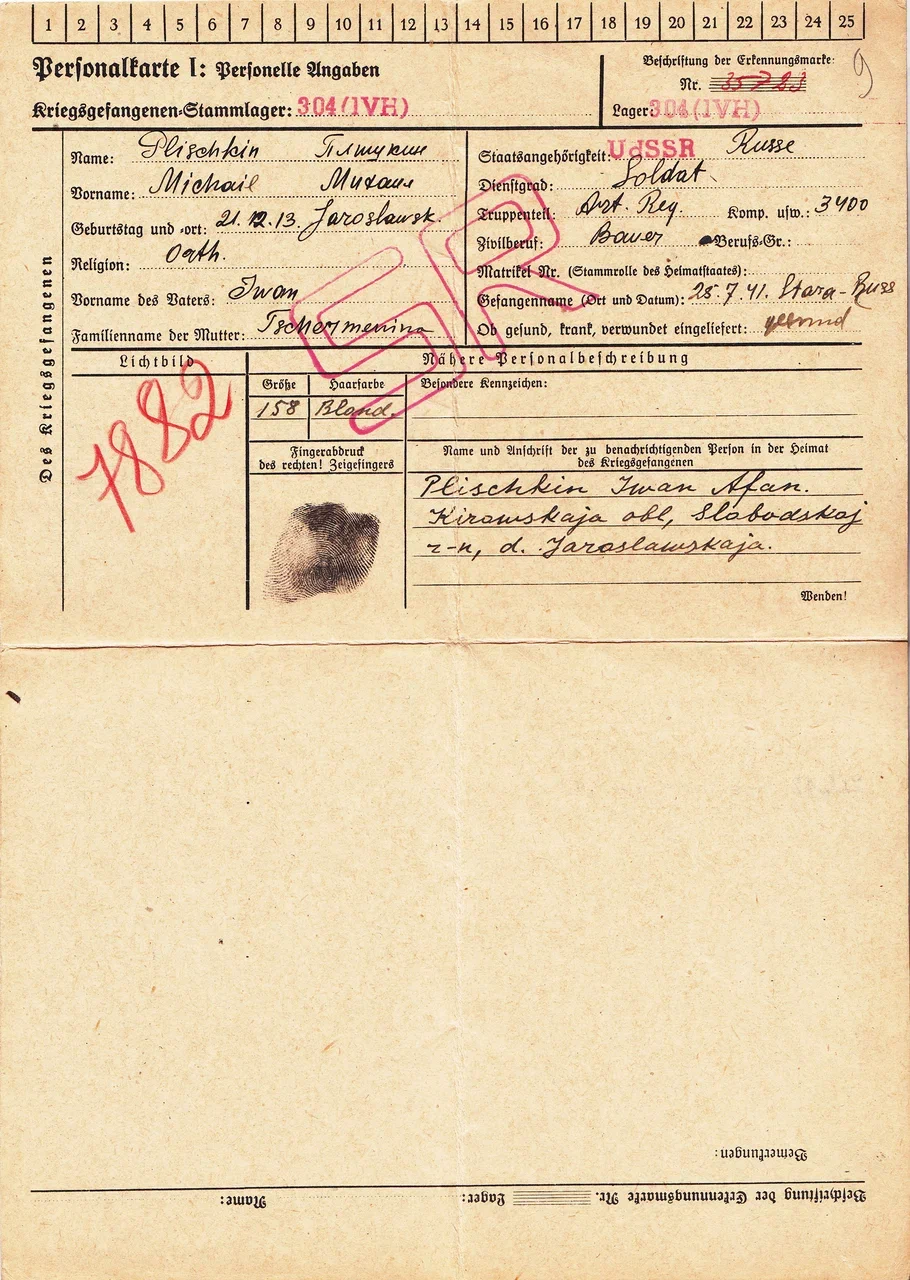 1 2 3 4 5 6 7 8 9 10 11 12 13 14 15 16 17 18 19 20 21 22 23 24 25
Personalkarte I: Personelle Angaben
Kriegsgefangenen-Stammlager: 304 (IVH)
Beschriftung der Erkennungsmarke:
Nr.
Lager: 304 (IVH)
9
Des Kriegsgefangenen
Name: Plischkin Плишкин
Vorname: Michail Михаил
Geburtstag und -ort: 21.12.13. Jaroslawsk.
Religion: Orth.
Vorname des Vaters: Iwan
Familienname der Mutter: Tschermenina
Staatsangehörigkeit: UdSSR Russe
Dienstgrad: Soldat
Truppenteil: Art. Reg. Komp. usw.: 3400
Zivilberuf: Bauer Berufs-Gr.:
Matrikel Nr. (Stammrolle des Heimatstaates):
Gefangenname (Ort und Datum): 25.7.41. Stara-Russ
Ob gesund, krank, verwundet eingeliefert: gesund
SR
Lichtbild
7882
Nähere Personalbeschreibung
Größe Haarfarbe Besondere Kennzeichen:
158 Blond.
Fingerabdruck
des rechten! Zeigefingers
Name und Anschrift der zu benachrichtigenden Person in der Heimat
des Kriegsgefangenen
Plischkin Iwan Afan.
Kirowskaja obl, Slobodskoj
r-n, d. Jaroslawskaja.
Wenden!
Bemerkungen:
Beschriftung der Erkennungsmarke Nr. Lager: Name: